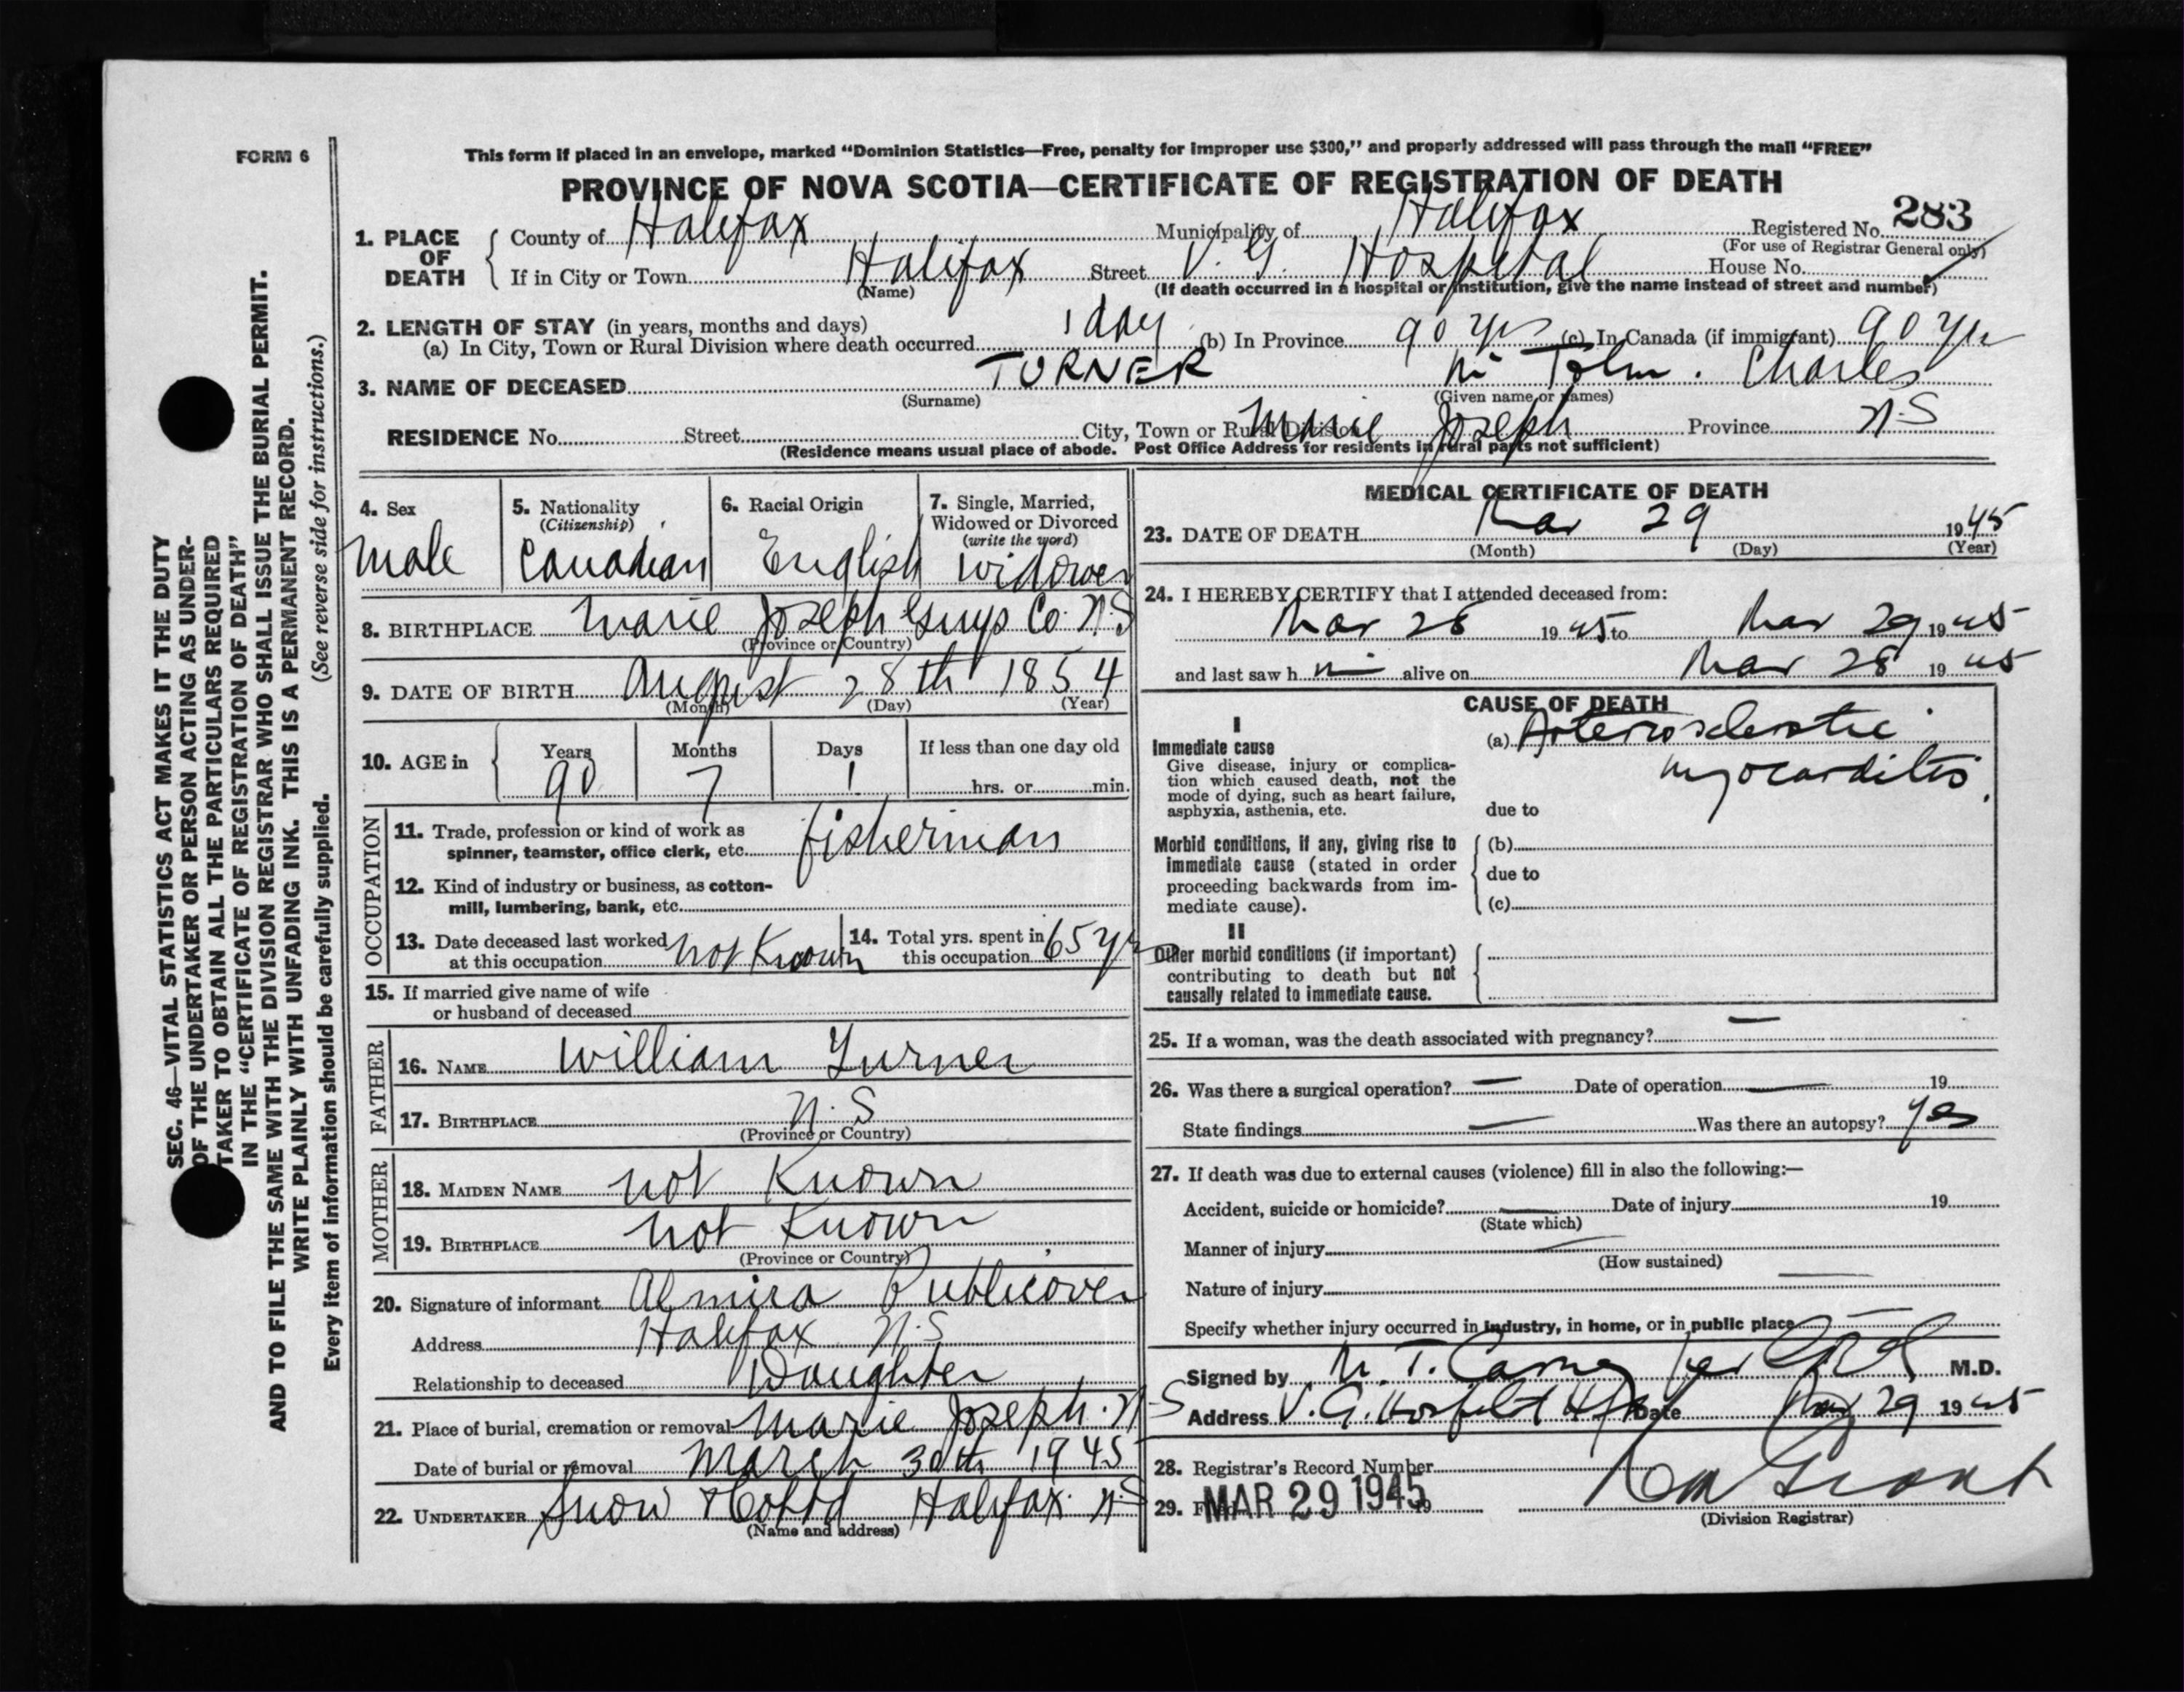 FORM 6
This form if placed in an envelope, marked “Dominion Statistics—Free, penalty for improper use $300,” and properly addressed will pass through the mail “FREE”
PROVINCE OF NOVA SCOTIA—CERTIFICATE OF REGISTRATION OF DEATH
1. PLACE OF DEATH { County of Halifax Municipality of Halifax Registered No. 283
(For use of Registrar General only)
If in City or Town Halifax Street V. G. Hospital House No.
(Name) (If death occurred in a hospital or institution, give the name instead of street and number)
2. LENGTH OF STAY (in years, months and days)
(a) In City, Town or Rural Division where death occurred 1 day (b) In Province 90 yrs (c) In Canada (if immigrant) 90 yrs
3. NAME OF DECEASED TURNER John. Charles
(Surname) (Given name or names)
RESIDENCE No. Street City, Town or Rural Division Marie Joseph Province N.S
(Residence means usual place of abode. Post Office Address for residents in rural parts not sufficient)
4. Sex
male
5. Nationality
(Citizenship)
Canadian
6. Racial Origin
English
7. Single, Married,
Widowed or Divorced
(write the word)
widower
8. BIRTHPLACE Marie Joseph Guys Co. N.S
(Province or Country)
9. DATE OF BIRTH August 28th 1854
(Month) (Day) (Year)
10. AGE in { Years Months Days If less than one day old
90 7 1 hrs. or min.
OCCUPATION
11. Trade, profession or kind of work as
spinner, teamster, office clerk, etc. fisherman
12. Kind of industry or business, as cotton-
mill, lumbering, bank, etc.
13. Date deceased last worked
at this occupation not Known
14. Total yrs. spent in
this occupation 65 yrs
15. If married give name of wife
or husband of deceased
FATHER
16. NAME William Turner
17. BIRTHPLACE N.S
(Province or Country)
MOTHER
18. MAIDEN NAME not Known
19. BIRTHPLACE not Known
(Province or Country)
20. Signature of informant Almira Publicover
Address Halifax N.S
Relationship to deceased Daughter
21. Place of burial, cremation or removal Marie Joseph. N.S
Date of burial or removal March 30th 1945
22. UNDERTAKER Snow & Co Ltd Halifax N.S
(Name and address)
MEDICAL CERTIFICATE OF DEATH
23. DATE OF DEATH Mar 29 1945
(Month) (Day) (Year)
24. I HEREBY CERTIFY that I attended deceased from:
Mar 28 1945 to Mar 29 1945
and last saw h im alive on Mar 28 1945
CAUSE OF DEATH
I
Immediate cause
Give disease, injury or complica-
tion which caused death, not the
mode of dying, such as heart failure,
asphyxia, asthenia, etc.
(a) Arteriosclerotic
myocarditis.
due to
Morbid conditions, if any, giving rise to
immediate cause (stated in order
proceeding backwards from im-
mediate cause).
(b)
due to
(c)
II
Other morbid conditions (if important)
contributing to death but not
causally related to immediate cause.
25. If a woman, was the death associated with pregnancy? —
26. Was there a surgical operation? — Date of operation — 19
State findings — Was there an autopsy? yes
27. If death was due to external causes (violence) fill in also the following:—
Accident, suicide or homicide? — Date of injury 19
(State which)
Manner of injury —
(How sustained)
Nature of injury —
Specify whether injury occurred in industry, in home, or in public place
Signed by M.D.
Address V. G. Hospital Hfx Date Mar 29 1945
28. Registrar's Record Number
29. Filed MAR 29 1945 19
Grant
(Division Registrar)
SEC. 46—VITAL STATISTICS ACT MAKES IT THE DUTY
OF THE UNDERTAKER OR PERSON ACTING AS UNDER-
TAKER TO OBTAIN ALL THE PARTICULARS REQUIRED
IN THE “CERTIFICATE OF REGISTRATION OF DEATH”
AND TO FILE THE SAME WITH THE DIVISION REGISTRAR WHO SHALL ISSUE THE BURIAL PERMIT.
WRITE PLAINLY WITH UNFADING INK. THIS IS A PERMANENT RECORD.
Every item of information should be carefully supplied. (See reverse side for instructions.)